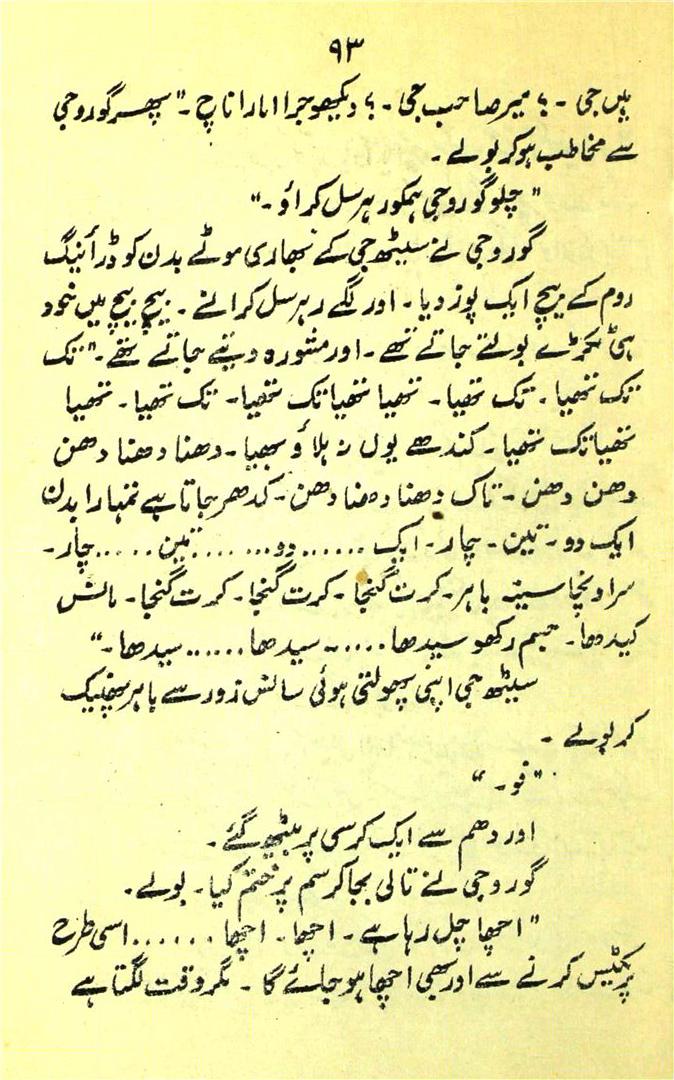 ۹۳
ہیں جی ۔ ؟ میر صاحب جی ۔ ؟ دیکھو جرا امارا ناچ ۔" پھر گورو جی
سے مخاطب ہو کر بولے ۔
" چلو گورو جی ہمکو رہرسل کراؤ ۔"
گورو جی نے سیٹھ جی کے بھاری موٹے بدن کو ڈرائینگ
روم کے بیچ ایک پوز دیا ۔ اور لگے رہرسل کرانے ۔ بیچ بیچ میں خود
ہی ٹکڑے بولتے جاتے تھے ۔ اور مشورہ دیتے جاتے تھے ۔" تک
تک تھیا ۔ تک تھیا ۔ تھیا تھیا تک تھیا ۔ تک تھیا ۔ تھیا
تھیا تک تھیا ۔ کندھے یوں نہ ہلاؤ بھیا ۔ دھنا دھنا دھن
دھن دھن ۔ تاک دھنا دھنا دھن ۔ کدھر جاتا ہے تمہارا بدن
ایک دو ۔ تین ۔ چار ۔ ایک ...... دو ........ تین ..... چار ۔
سر اونچا سینہ باہر ۔ کرت گنجا ۔ کرت گنجا ۔ کرت گنجا ۔
جسم رکھو سیدھا ..... ۔ سیدھا ...... سیدھا ۔"
سیٹھ جی اپنی پھولتی ہوئی سانس زور سے باہر پھینک
کر بولے ۔
" فو ۔ "
اور دھم سے ایک کرسی پر بیٹھ گئے ۔
گورو جی نے تالی بجا کر سم پر ختم کیا ۔ بولے ۔
" اچھا چل رہا ہے ۔ اچھا ۔ اچھا ...... اسی طرح
پریکٹیس کرنے سے اور بھی اچھا ہو جائے گا ۔ مگر وقت لگتا ہے